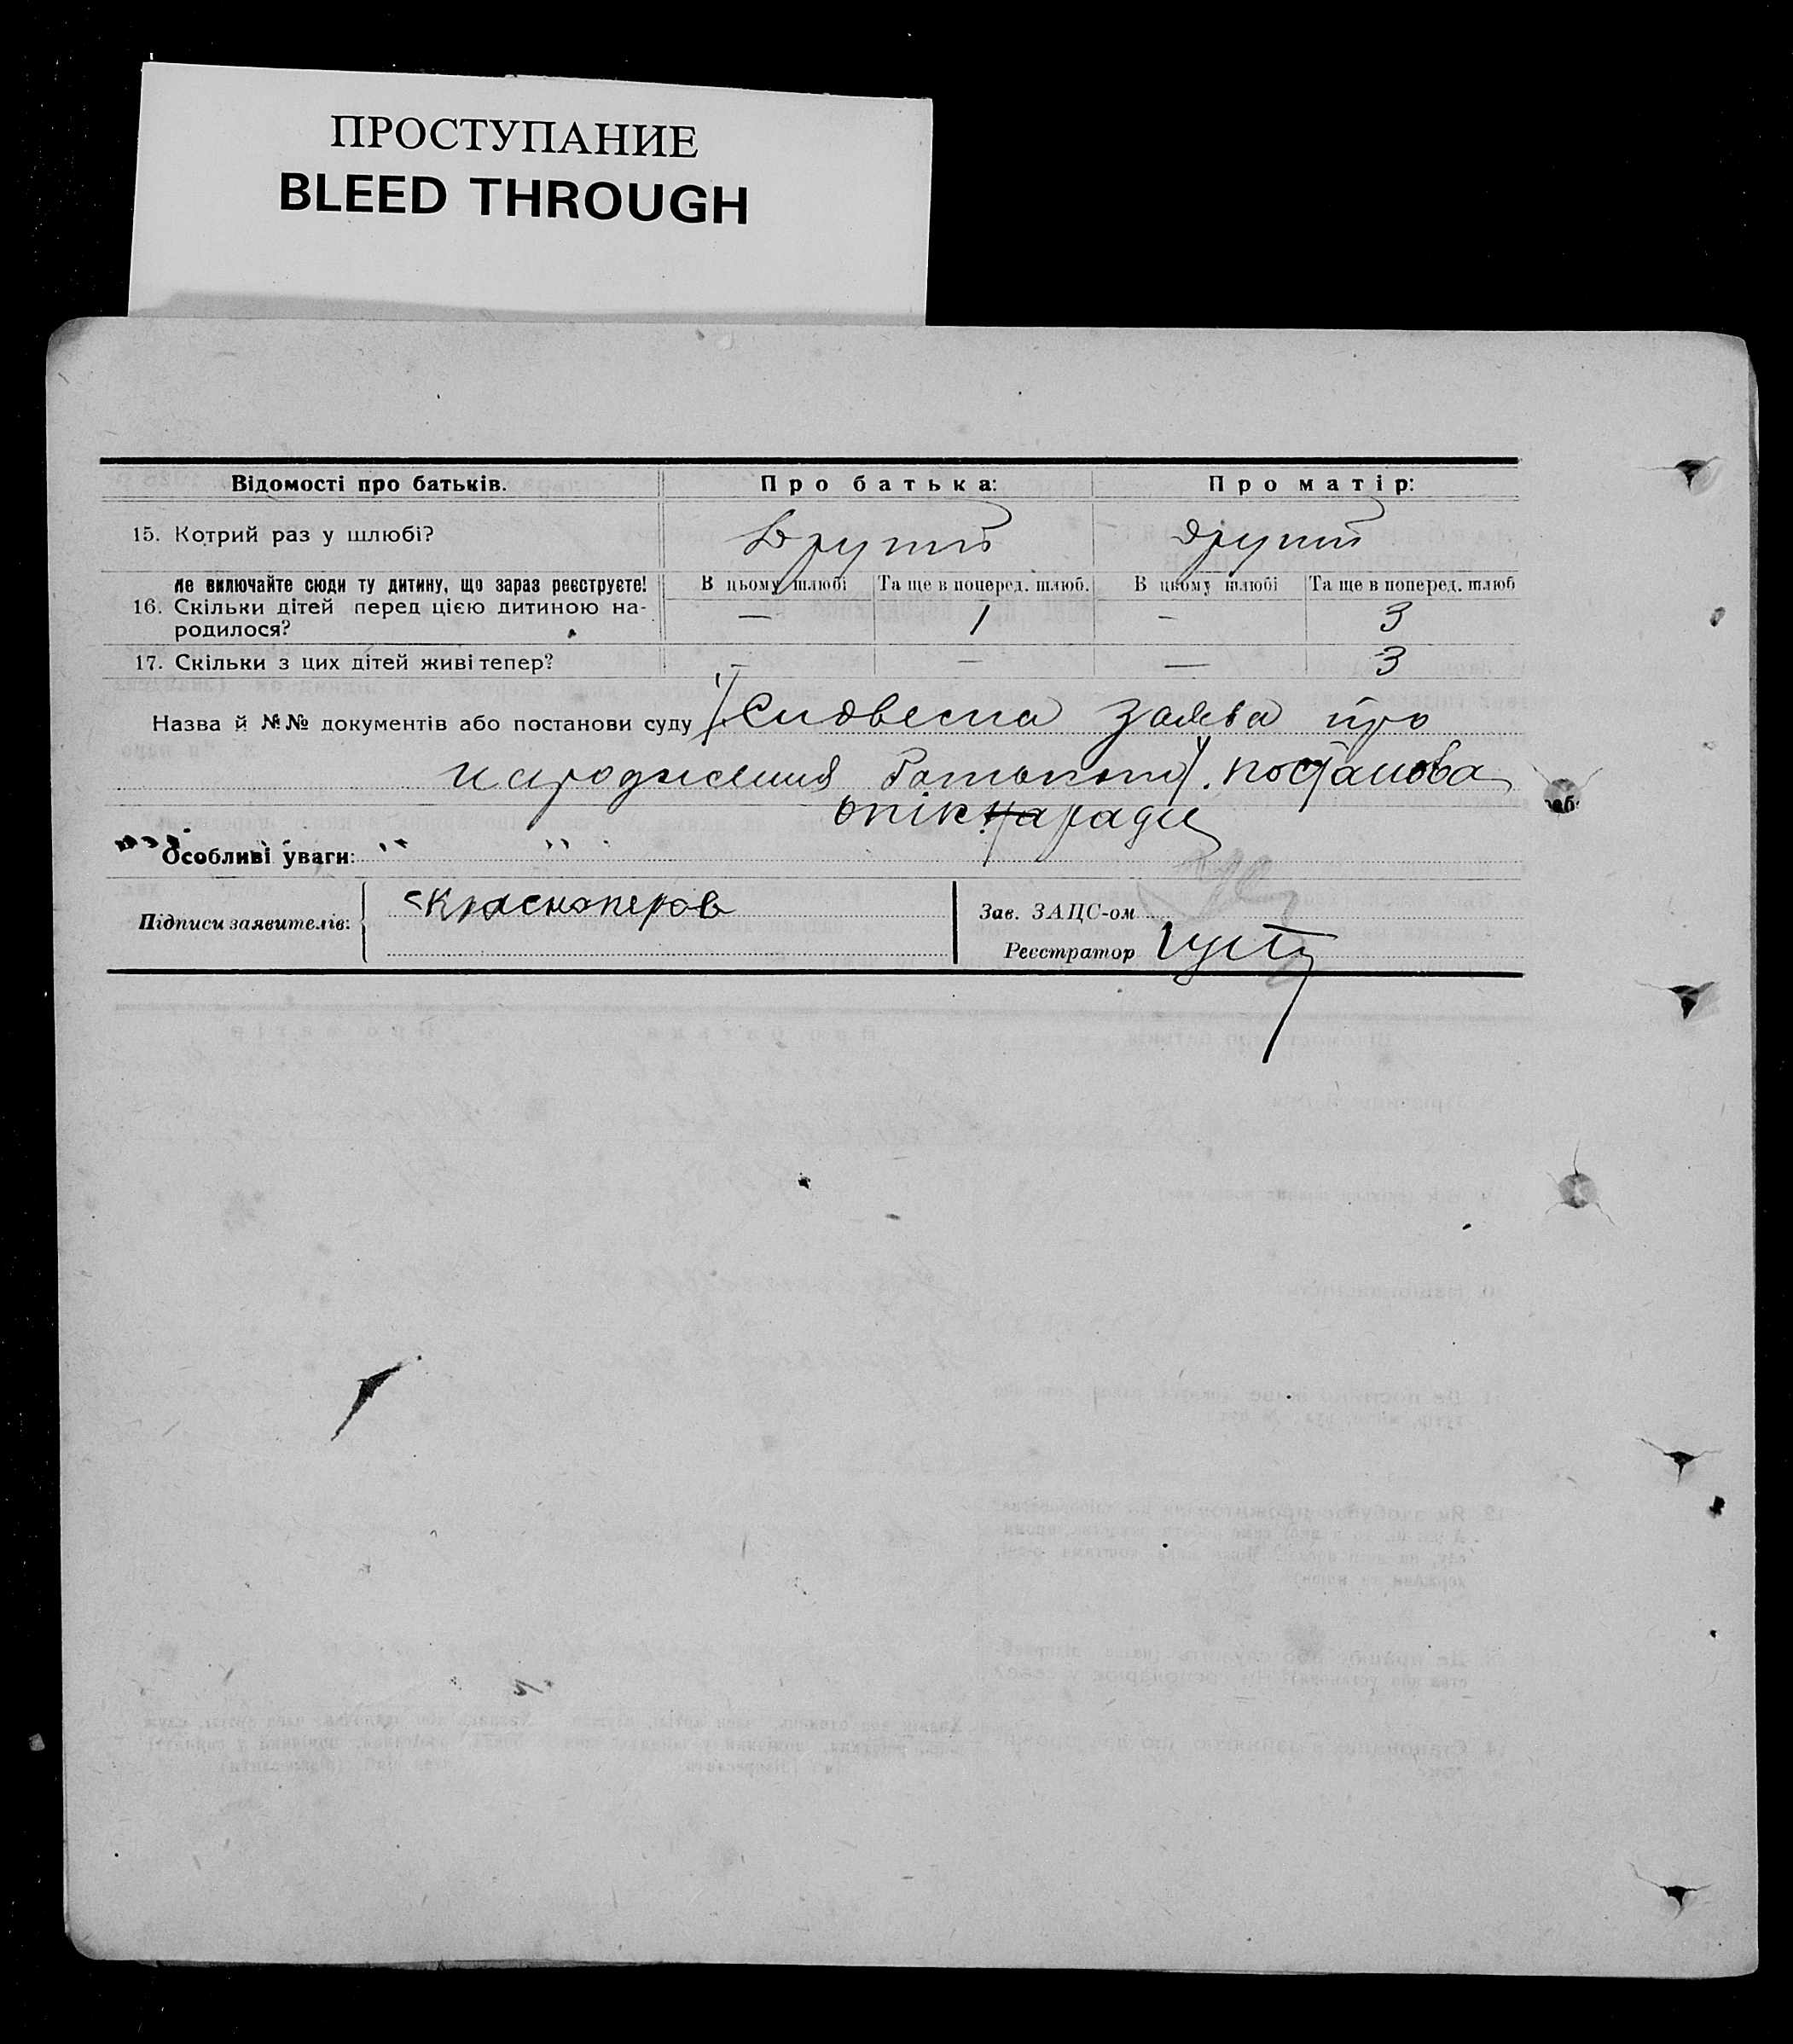 ПРОСТУПАНИЕ
BLEED THROUGH
Відомості про батьків. Про батька: Про матір:
15. Котрий раз у шлюбі? Другий другий
Не включайте сюди ту дитину, що зараз реєструєте! В цьому шлюбі Та ще в поперед. шлюб. В цьому шлюбі Та ще в поперед. шлюб
16. Скільки дітей перед цією дитиною на-
родилося? — 1 – 3
17. Скільки з цих дітей живі тепер? – – — 3
Назва й №№ документів або постанови суду Словесна заява про
народження батьком. постанова
опікради
Особливі уваги:
Підписи заявителів: Красноперов
Зав. ЗАЦС-ом
Реєстратор